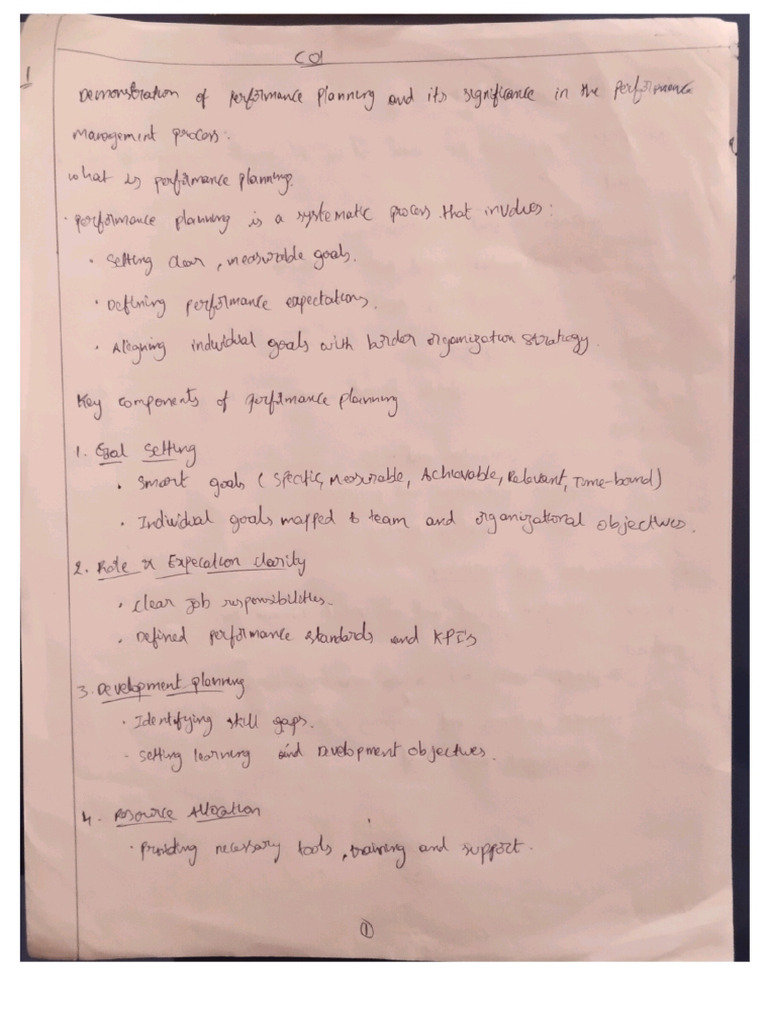 CO1
1
Demonstration of performance planning and its significance in the performance
Management process:
What is performance planning.
· performance planning is a systematic process that involves:
· Setting clear, measurable goals.
· Defining performance expectations.
· Aligning individual goals with border organization strategy.
Key components of performance planning
1. Goal Setting
· Smart goals (Specific, Measurable, Achievable, Relevant, Time-bound)
· Individual goals mapped to team and organizational objectives.
2. Role & Expecation clarity
· clear job responsibilities.
· Defined performance standards and KPI's
3. Development planning
· Identifying skill gaps.
- Setting learning and Development objectives.
4. Resource Allocation
· providing necessary tools, training and support.
1